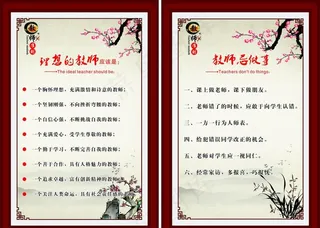 理想的教师应该是：
The ideal teacher should be.
一个胸怀理想，充满激情和诗意的教师；
一个坚韧刚强，不向挫折弯腰的教师；
一个自信心强，不断挑战自我的教师；
一个充满爱心，受学生尊敬的教师；
一个勤于学习，不断完善自我的教师；
一个善于合作，具有人格魅力的教师；
一个追求卓越，富有创新精神的教师；
一个关注人类命运，具有社会责任感的
教师忌做事
Teachers don't do things.
一、课上做老师，课下做朋友。
二、老师错了的时候，应敢于向学生认错。
三、一方一行为人师表。
四、给犯错误同学改正的机会。
五、老师对学生应一视同仁。
六、经常家访，多报喜，巧报忧。